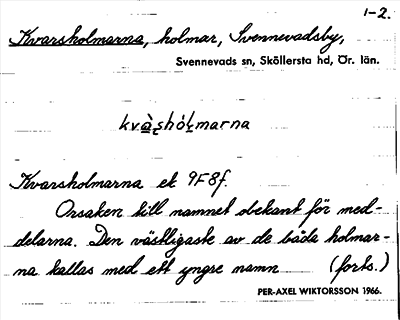 1-2.
Kvarsholmarna, holmar, Svennevadsby,
Svennevads sn, Sköllersta hd, Ör. län.
kvàshólmarna
Kvarsholmarna ek 9F8f.
Orsaken till namnet obekant för med-
delarna. Den västligaste av de båda holmar-
na kallas med ett yngre namn (forts.)
PER-AXEL WIKTORSSON 1966.